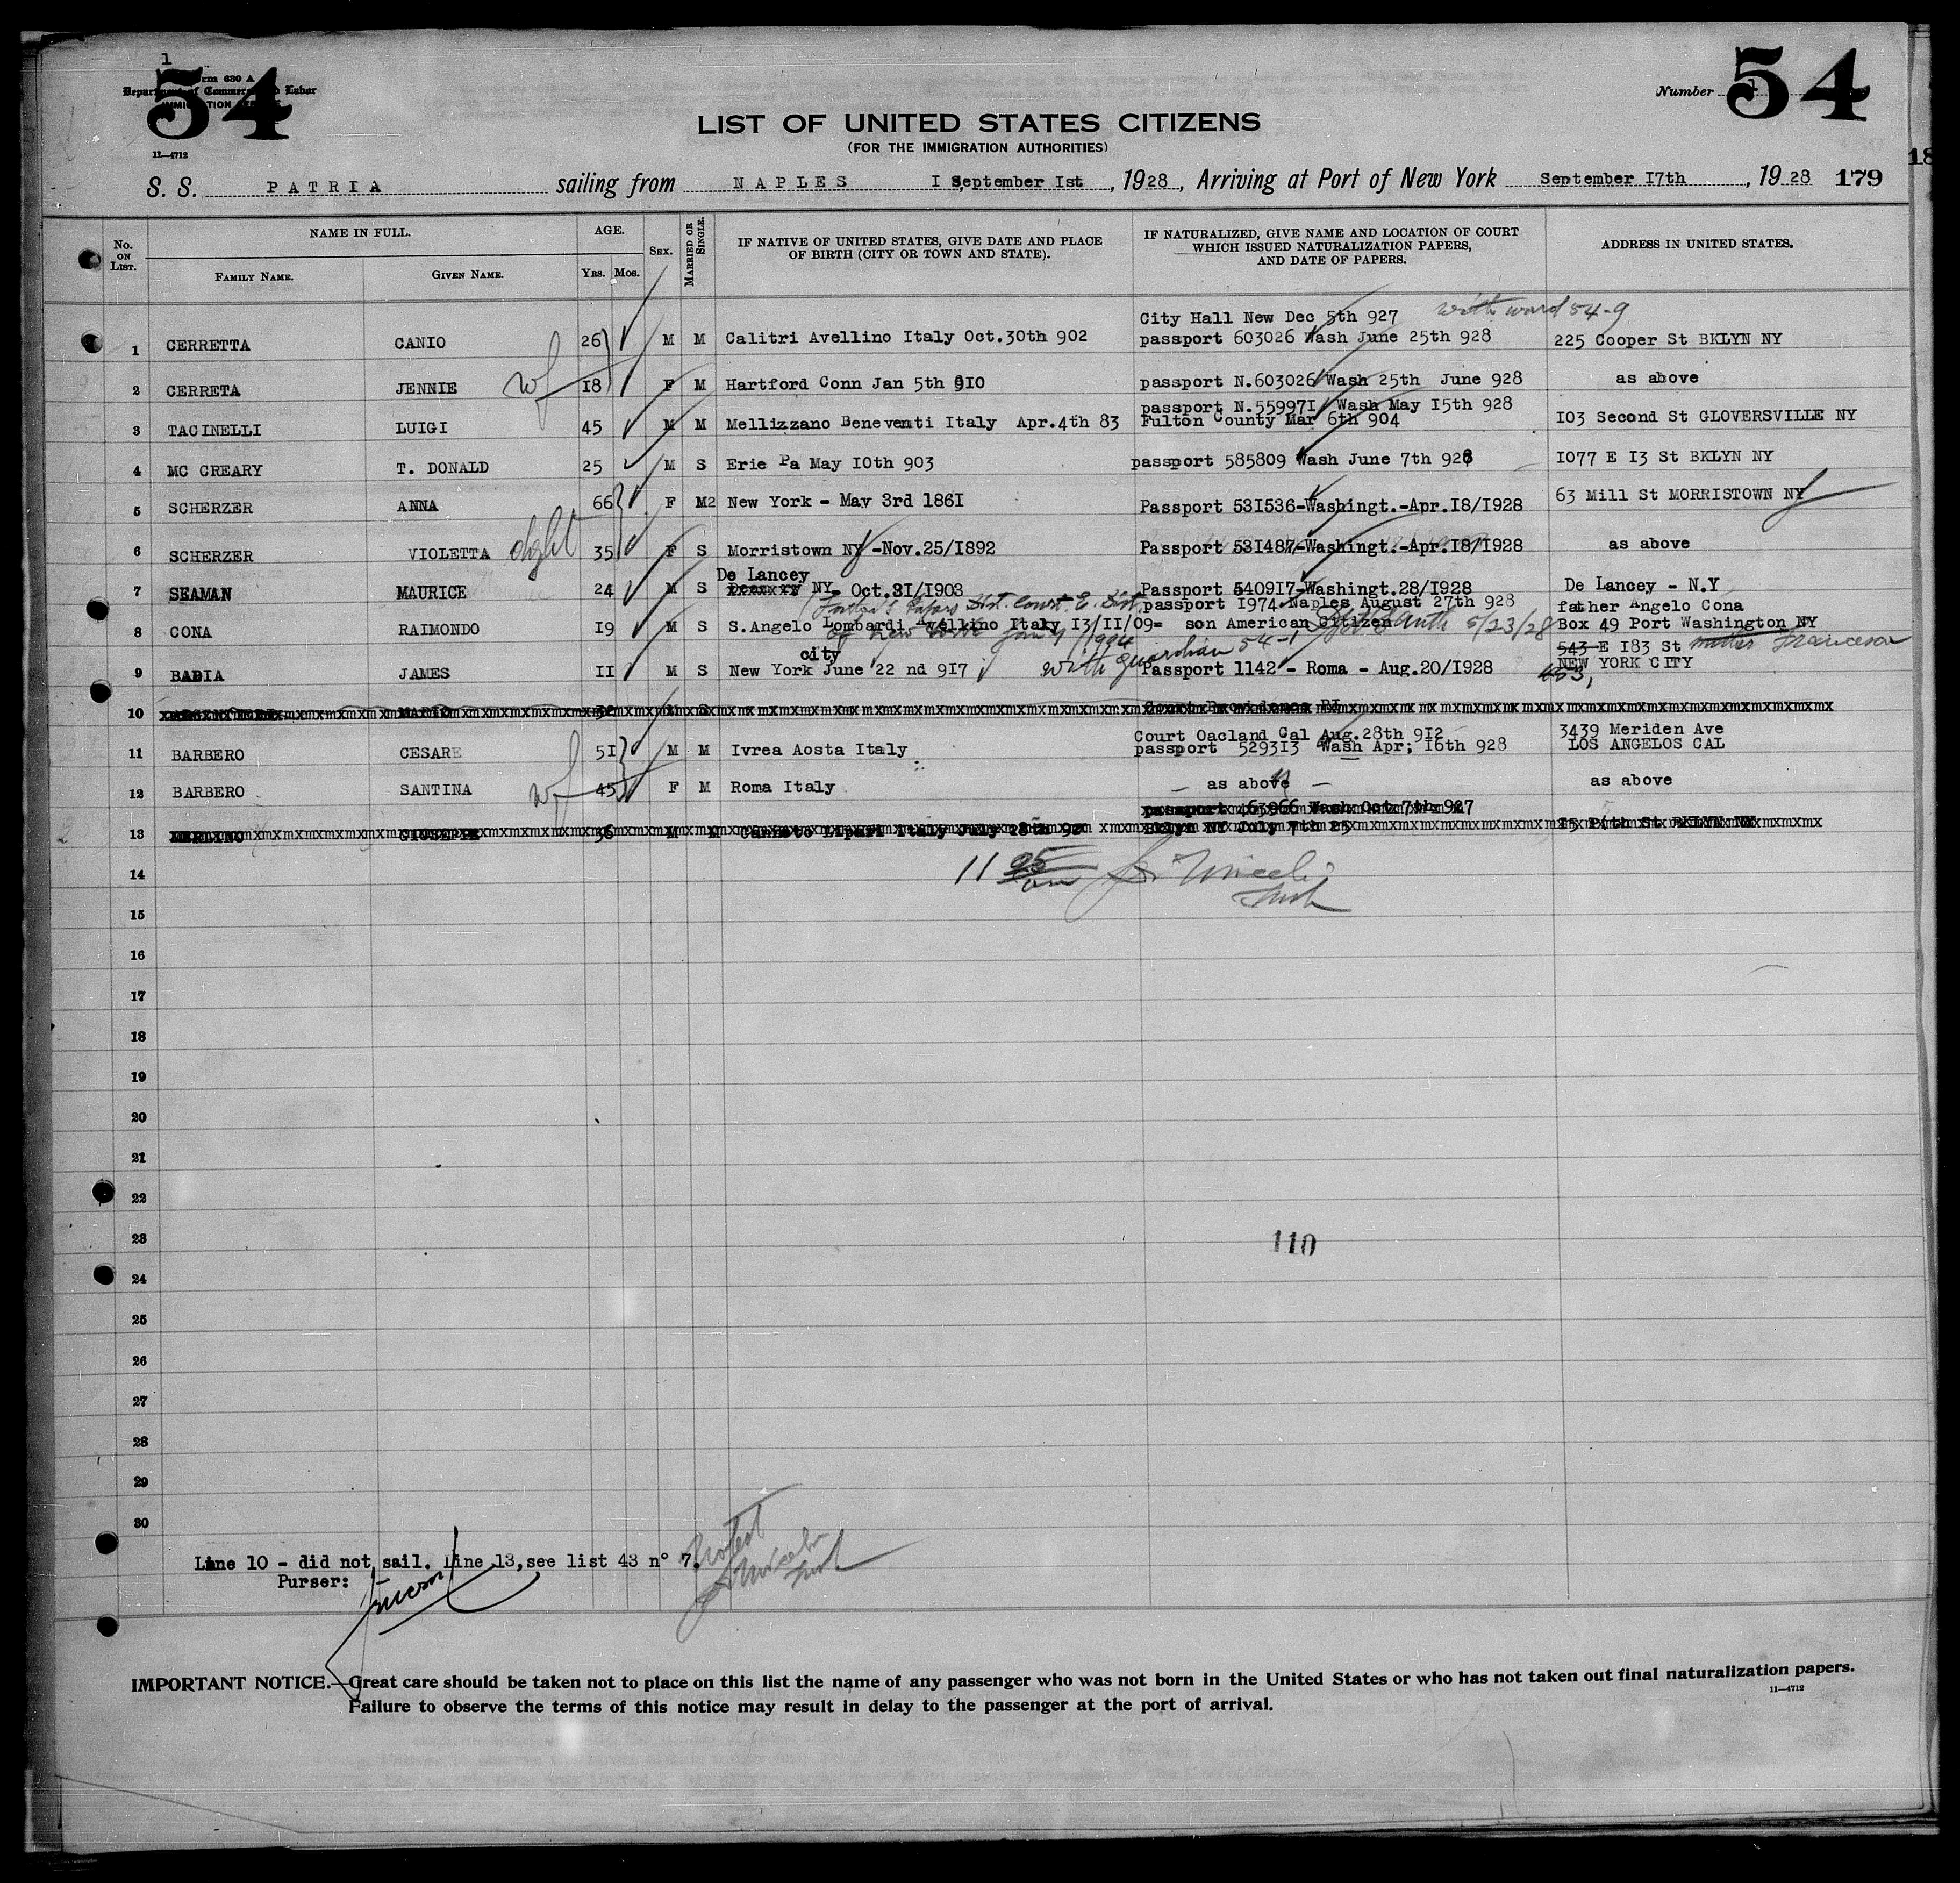 1
54
Form 630 A
Department of Commerce and Labor
IMMIGRATION
11—4712
Number 1
54
LIST OF UNITED STATES CITIZENS
(FOR THE IMMIGRATION AUTHORITIES)
18
S. S. PATRIA sailing from NAPLES I September Ist, 1928, Arriving at Port of New York September I7th, 1928 179
No. ON LIST.
NAME IN FULL.
FAMILY NAME.
GIVEN NAME.
AGE.
YRS. MOS.
SEX.
MARRIED OR SINGLE.
IF NATIVE OF UNITED STATES, GIVE DATE AND PLACE OF BIRTH (CITY OR TOWN AND STATE).
IF NATURALIZED, GIVE NAME AND LOCATION OF COURT WHICH ISSUED NATURALIZATION PAPERS, AND DATE OF PAPERS.
ADDRESS IN UNITED STATES.
City Hall New Dec 5th 927 with ward 54-9
1 CERRETTA CANIO 26 M M Calitri Avellino Italy Oct.30th 902 passport 603026 Wash June 25th 928 225 Cooper St BKLYN NY
2 CERRETA JENNIE wf I8 F M Hartford Conn Jan 5th 9I0 passport N.603026 Wash 25th June 928 as above
passport N.55997I Wash May I5th 928
3 TACINELLI LUIGI 45 M M Mellizzano Beneventi Italy Apr.4th 83 Fulton County Mar 6th 904 I03 Second St GLOVERSVILLE NY
4 MC CREARY T. DONALD 25 M S Erie Pa May I0th 903 passport 585809 Wash June 7th 928 I077 E I3 St BKLYN NY
5 SCHERZER ANNA 66 F M2 New York - May 3rd 186I Passport 53I536-Washingt.-Apr.I8/I928 63 Mill St MORRISTOWN NY
6 SCHERZER VIOLETTA dght 35 F S Morristown NY -Nov.25/I892 Passport 53I487-Washingt.-Apr.I8/I928 as above
De Lancey
7 SEAMAN MAURICE 24 M S NY- Oct.3I/I903 Passport 5409I7-Washingt.28/I928 De Lancey - N.Y
Father's Papers Dist. Court. E. Dist. passport I974 Naples August 27th 928 father Angelo Cona
8 CONA RAIMONDO I9 M S S.Angelo Lombardi Avellino Italy I3/II/09= son American Citizen 5/23/28 Box 49 Port Washington NY
of New York Jan 4/1904
city with guardian 54-1 543 E I83 St mother Francesca
9 BADIA JAMES II M S New York June 22 nd 9I7 Passport 1142 - Roma - Aug.20/I928 NEW YORK CITY
653,
10 MARIO 32 M S Court Providence RI
Court Oacland Cal Aug.28th 9I2 3439 Meriden Ave
11 BARBERO CESARE 5I M M Ivrea Aosta Italy passport 5293I3 Wash Apr; I6th 928 LOS ANGELOS CAL
12 BARBERO SANTINA wf 45 F M Roma Italy as above as above
passport 463966 Wash Oct 7th 927
13 MERLINO GIUSEPPE 36 M M Canneto Lipari Italy July 28th 92 Bklyn NY July 7th 25 BKLYN NY
14 11 25 am
15
16
17
18
19
20
21
22
23
110
24
25
26
27
28
29
30
Line 10 - did not sail. Line 13, see list 43 n° 7.
Purser:
IMPORTANT NOTICE.—Great care should be taken not to place on this list the name of any passenger who was not born in the United States or who has not taken out final naturalization papers.
11—4712
Failure to observe the terms of this notice may result in delay to the passenger at the port of arrival.